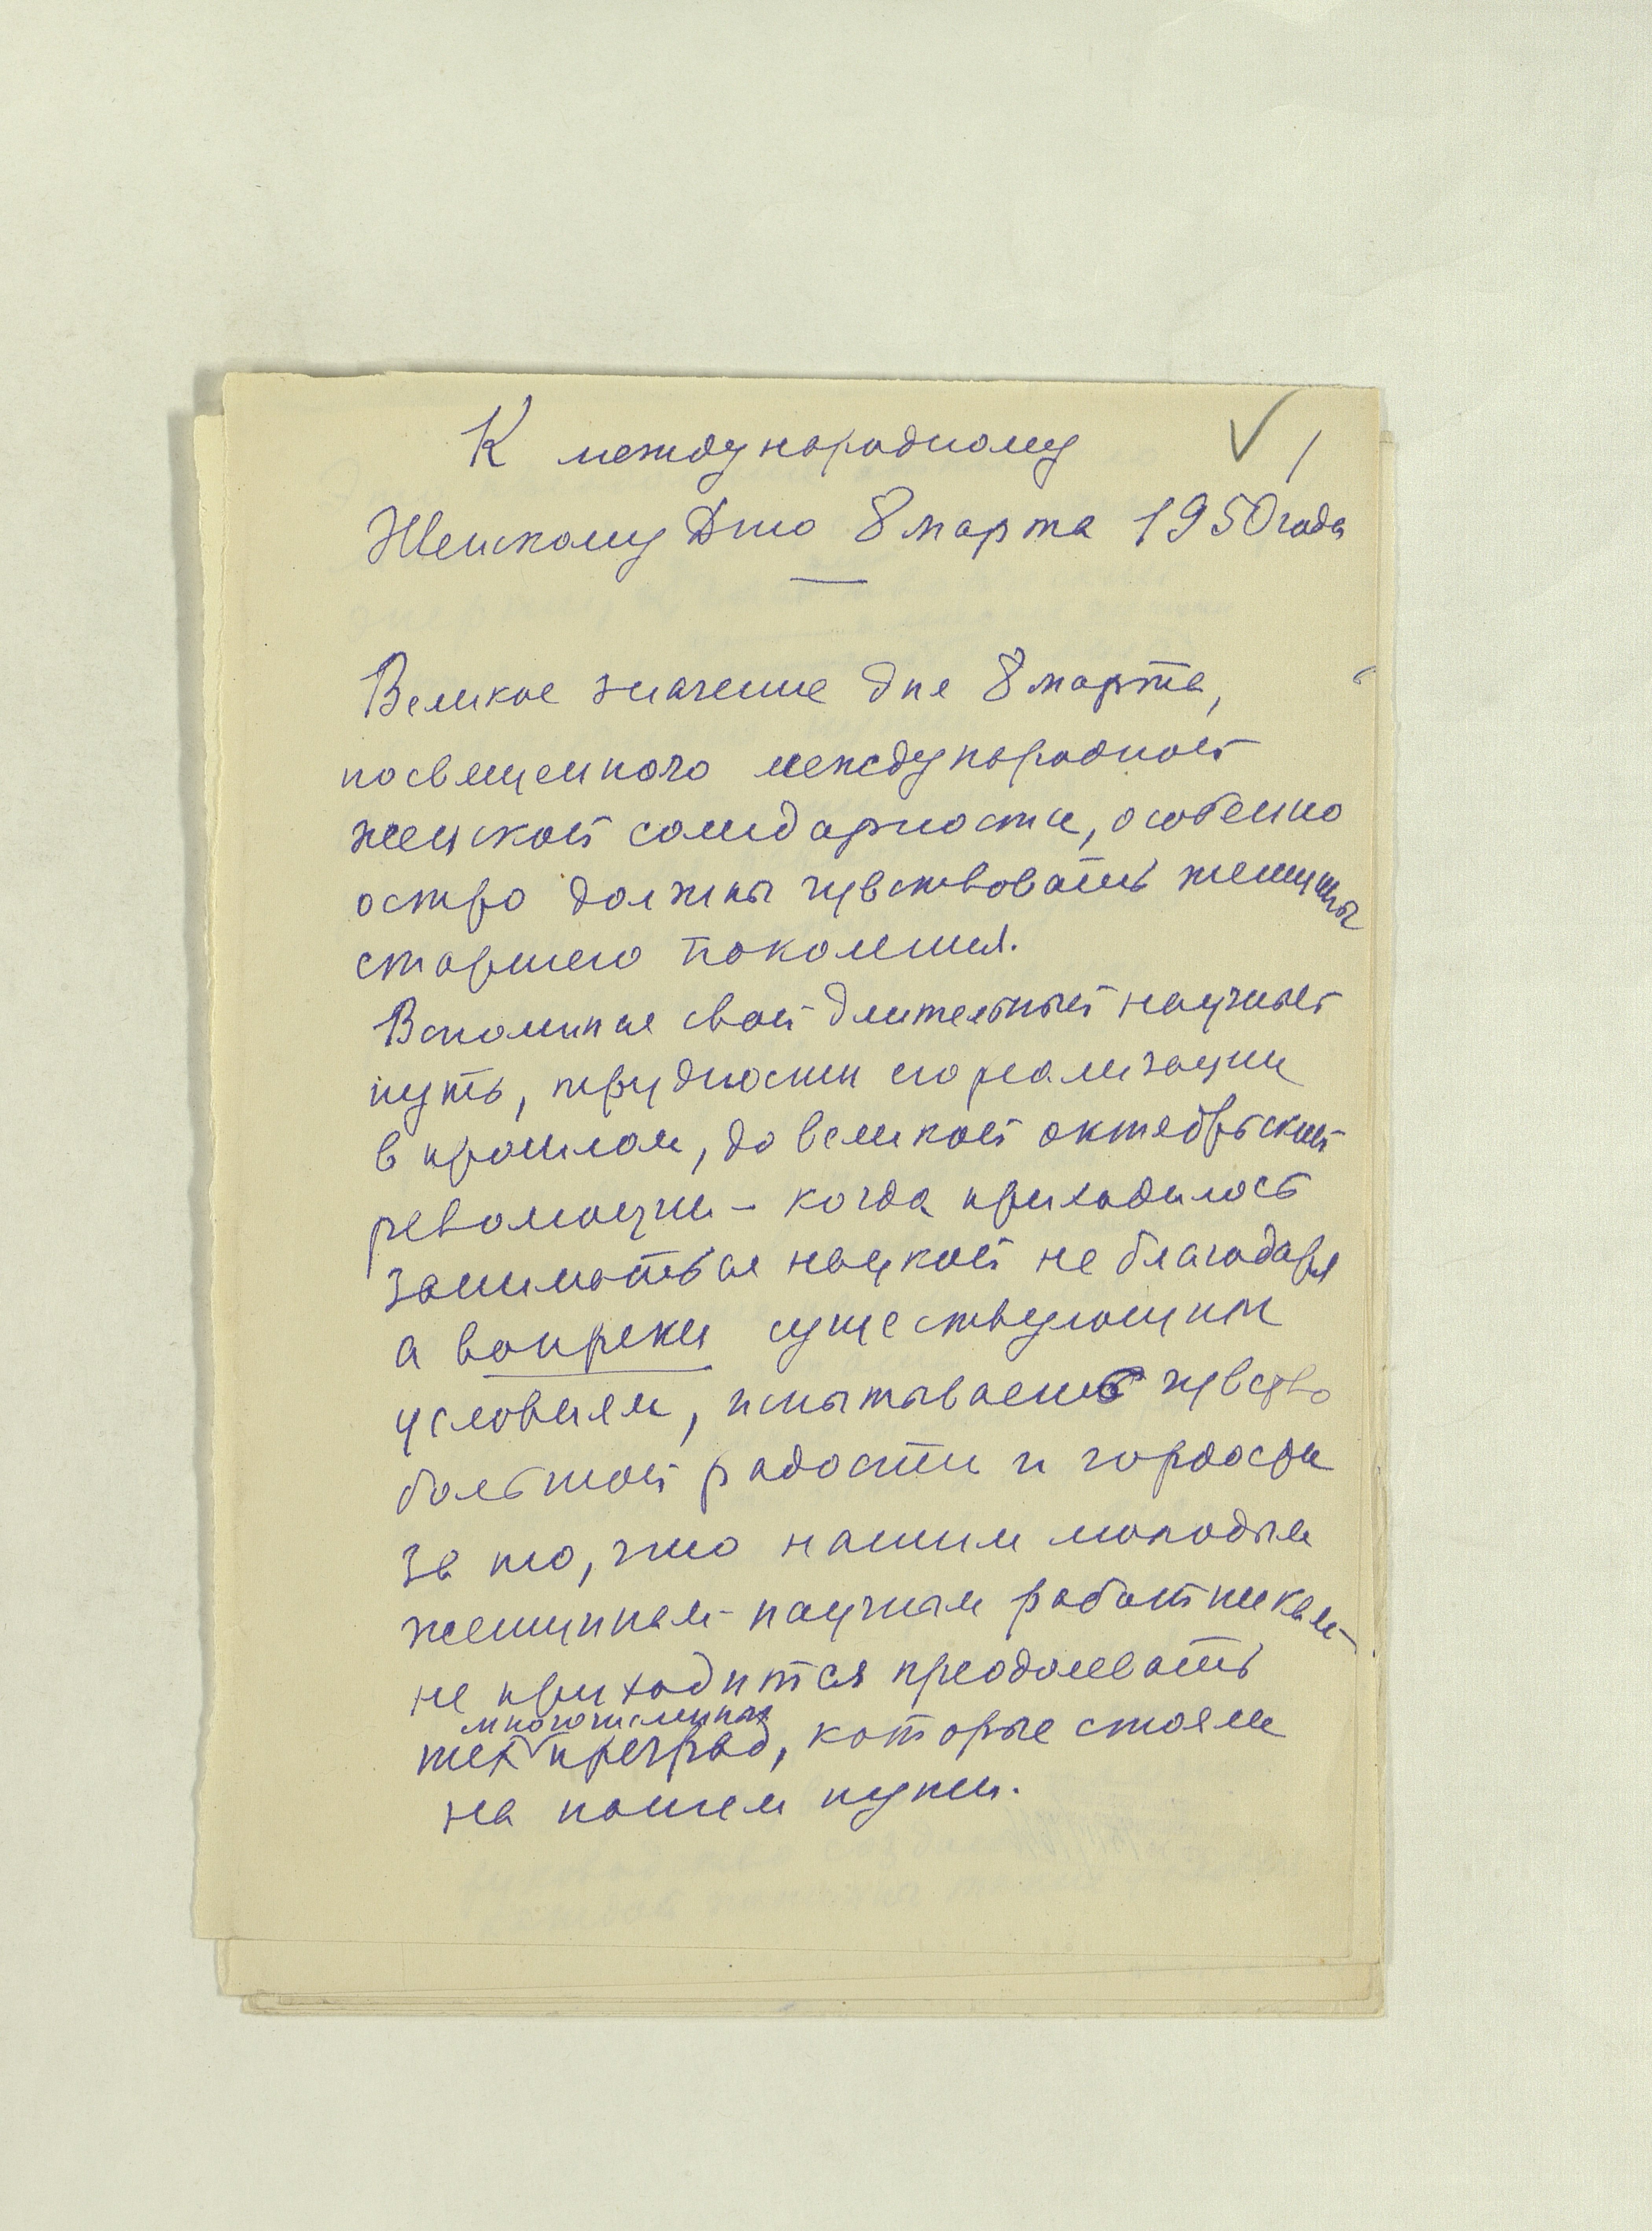 К международному
Женскому Дню 8 марта 1950 года
Великое значение дня 8 марта,
посвященного международной
женской солидарности, особенно
остро должны чувствовать женщины
старшего поколения.
Вспоминая свой длительный научный
путь, трудности его реализации
в прошлом, до великой октябрьской
революции – когда приходилось
заниматься наукой не благодаря
а вопреки существующим
условиям, испытываешь чувство
большой радости и гордости
за то, что нашим молодым
женщинам-научным работникам
не приходится преодолевать
многочисленных
тех преград, которые стояли
на нашем пути.